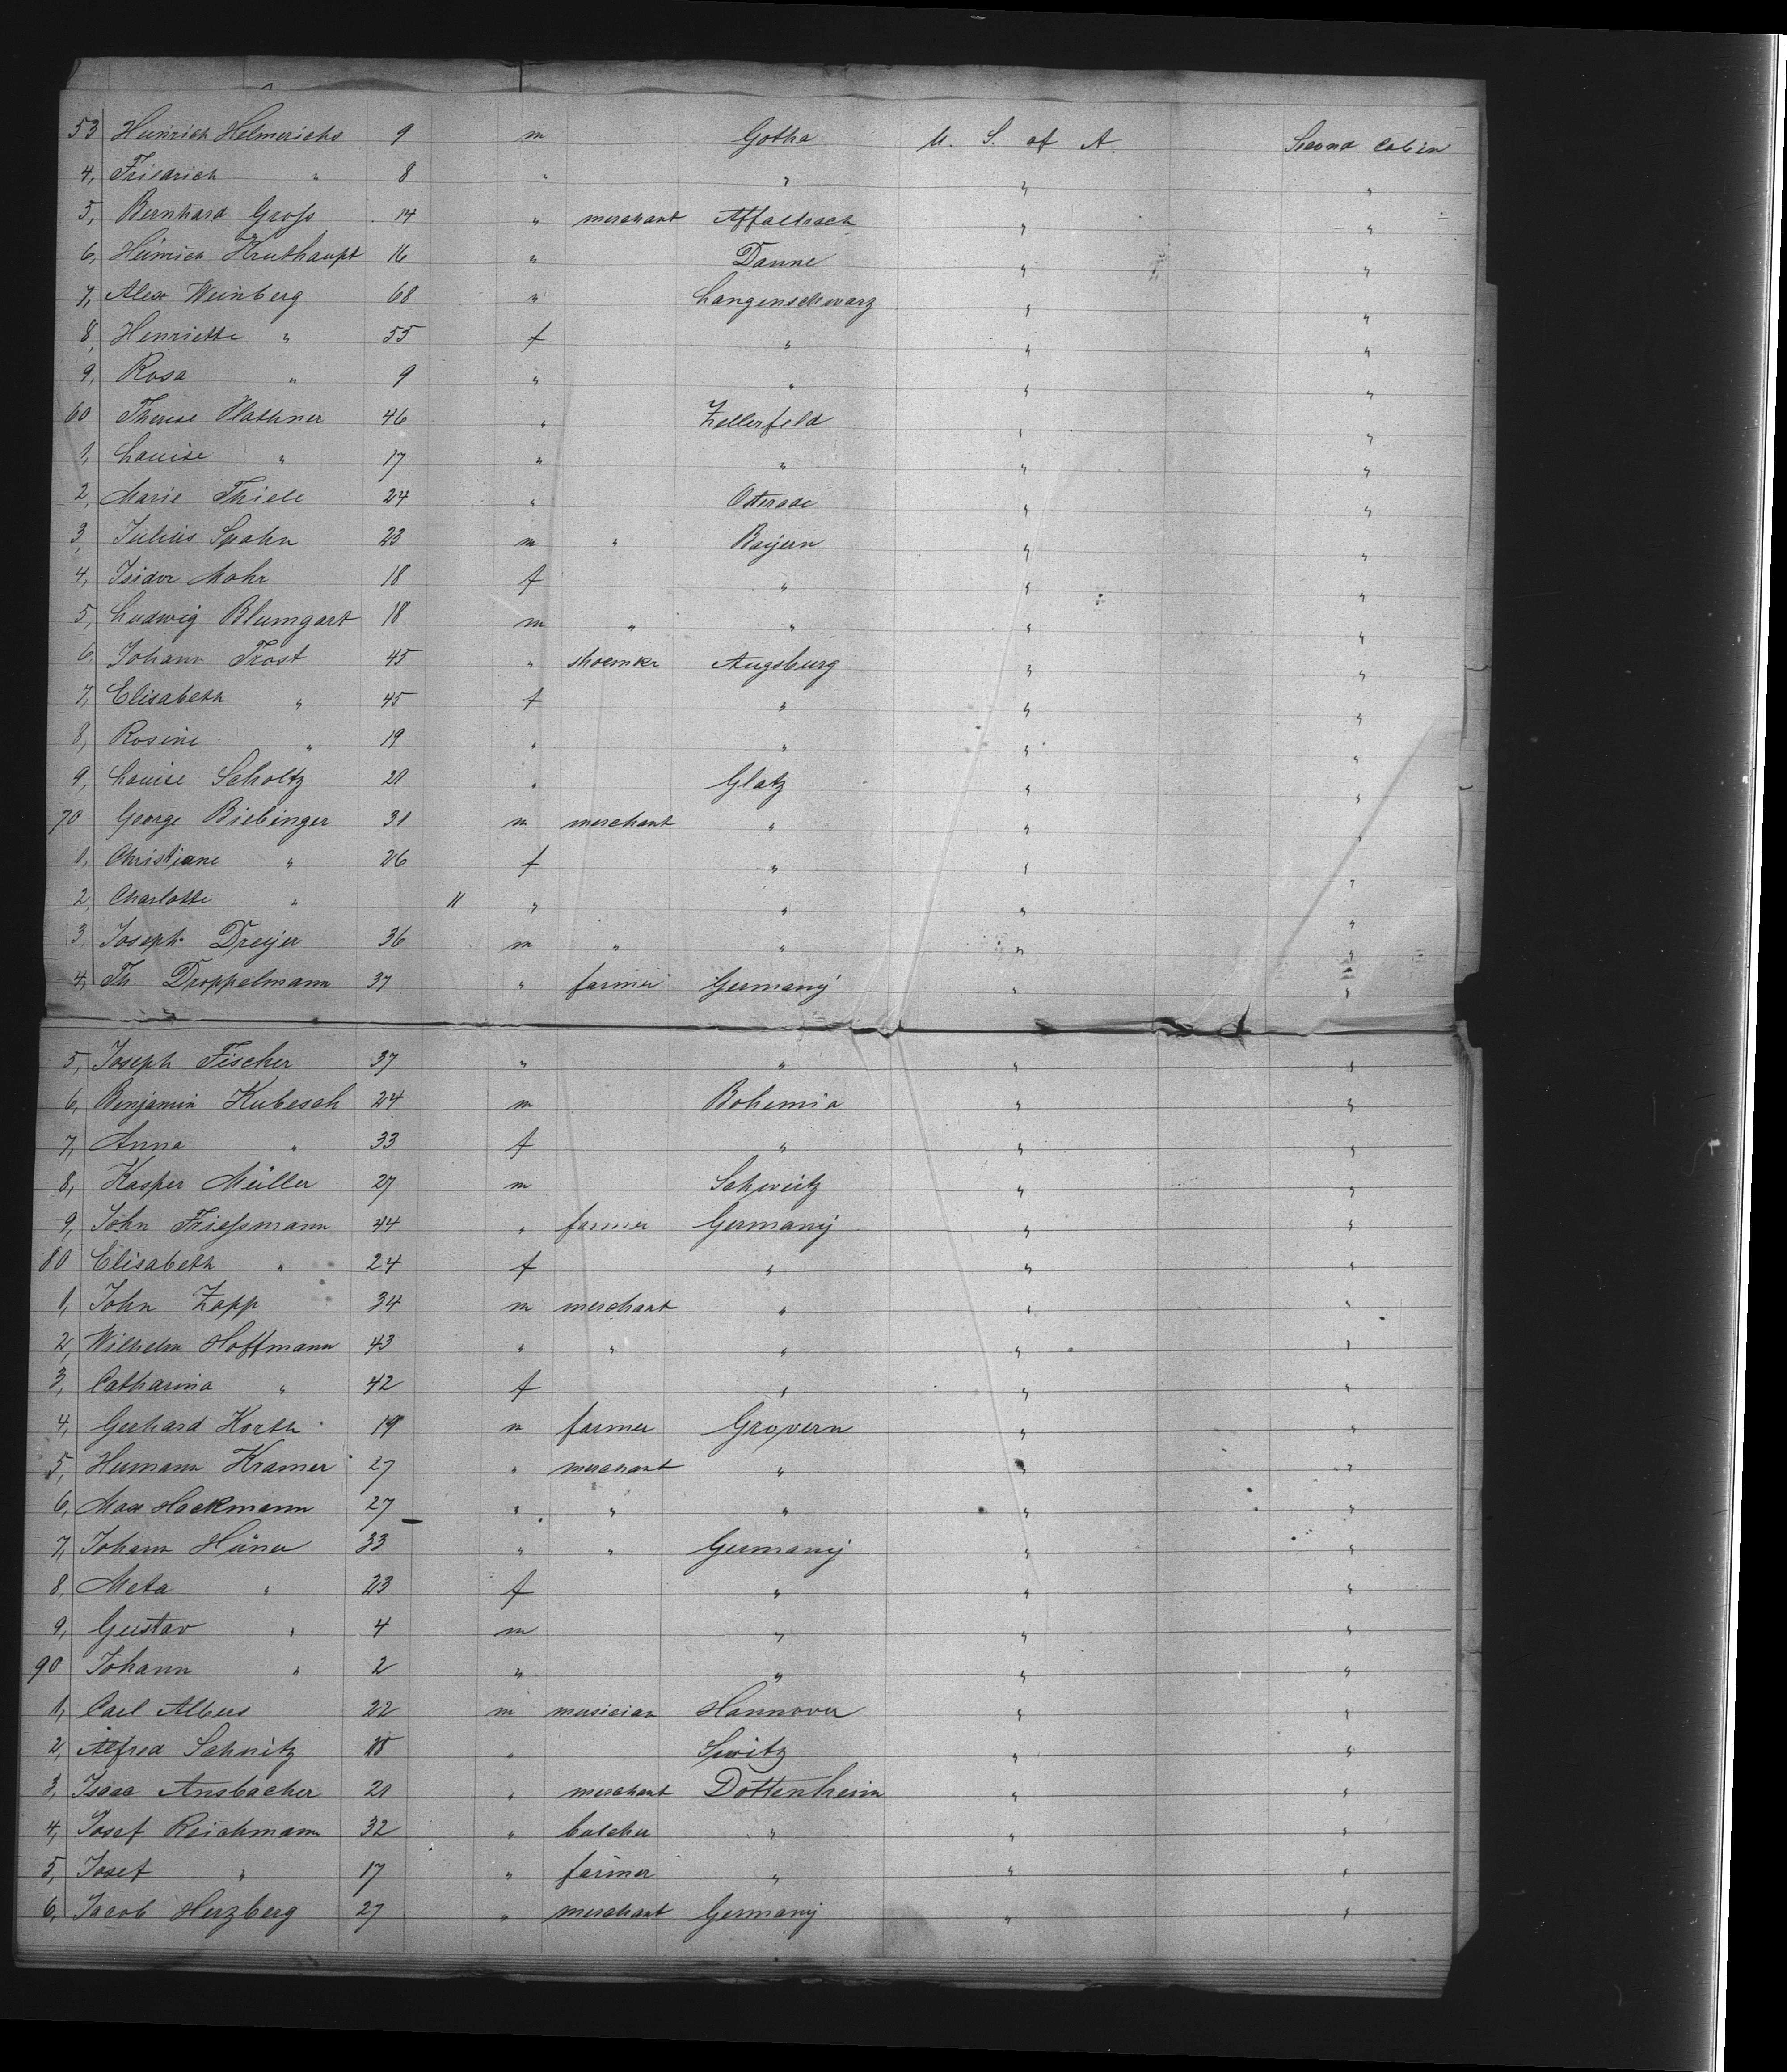 53 Heinrich Helmerichs 9 m Gotha U. S. of A. Second Cabin
4, Friedrich " 8 " " " "
5, Bernhard Groß 14 " merchant Affaltrach " "
6, Heinrich Kruthaupt 16 " Damme " "
7, Alex Weinberg 68 " Langenschwarz " "
8, Henriette " 55 f " " "
9, Rosa " 9 " " " "
60 Therese Plathner 46 " Zellerfeld " "
1, Louise " 17 " " " "
2, Marie Thiele 24 " Osterode " "
3, Julius Spahn 23 m " Bayern " "
4, Isidor Mohr 18 f " " "
5, Ludwig Blumgart 18 m " " " "
6, Johann Trost 45 " shoemkr Augsburg " "
7, Elisabeth " 45 f " " "
8, Rosine " 19 " " " "
9, Louise Scholtz 21 " Glatz " "
70 George Biebinger 31 m merchant " " "
1, Christiane " 26 f " " "
2, Charlotte " 11 " " " "
3, Joseph Dreyer 36 m " " " "
4, Th Droppelmann 37 " farmer Germany " "
5, Joseph Fischer 37 " " " "
6, Benjamin Kubesch 24 m Bohemia " "
7, Anna " 33 f " " "
8, Kasper Müller 27 m Schweitz " "
9, John Frießmann 44 " farmer Germany " "
80 Elisabeth " 24 f " " "
1, John Zapp 34 m merchant " " "
2, Wilhelm Hoffmann 43 " " " " "
3, Catharina " 42 f " " "
4, Gerhard Korth 19 m farmer Grovern " "
5, Hermann Kramer 27 " merchant " " "
6, Max Hackmann 27 " " " " "
7, Johann Hüner 33 " " Germany " "
8, Meta " 23 f " " "
9, Gustav " 4 m " " "
90 Johann " 2 " " " "
1, Carl Albers 22 m musician Hannover " "
2, Alfred Schnitz " Switz " "
3, Isaac Ansbacher 21 " merchant Dottenheim " "
4, Josef Reichmann 32 " butcher " " "
5, Josef " 17 " farmer " " "
6, Jacob Herzberg 27 " merchant Germany " "